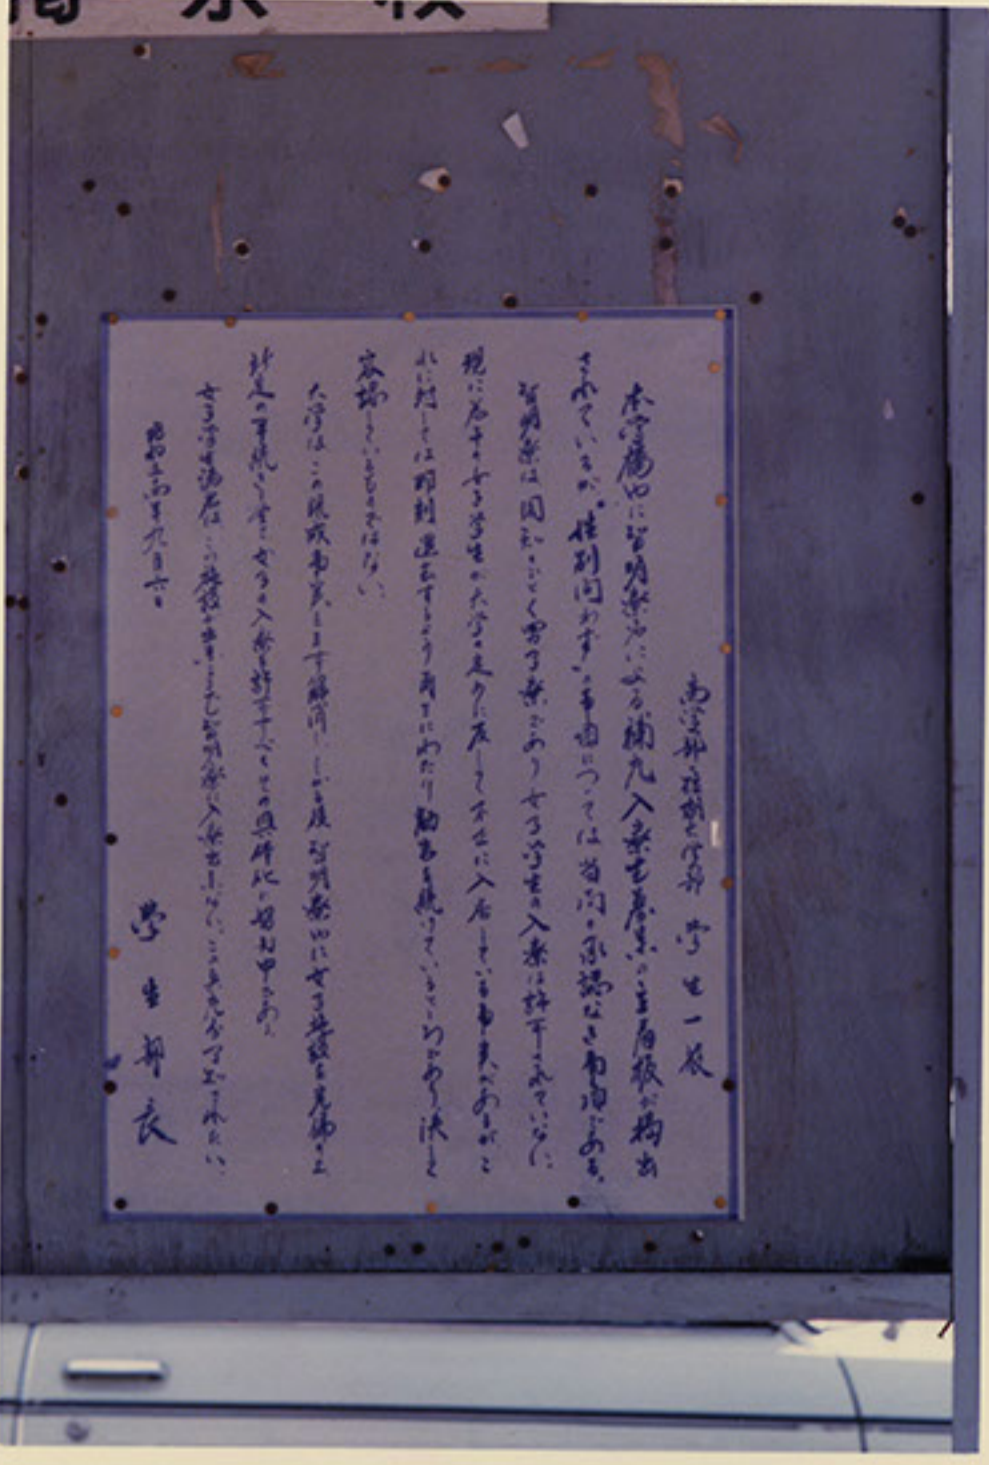 商学部・短期大学部 学生一般
本学構内に智明寮名による補充入寮生募集の立看板が掲出
されているが、"性別問わず"の事項については当局の承認なき事項である。
智明寮は周知のごとく男子寮であり女子学生の入寮は許可されていない。
現に若干の女子学生が大学の定めに反して不正に入居している事実があるがこ
れに対しては即刻退去するよう再三にわたり勧告を続けているところであり決して
容認しているものではない。
大学はこの既成事実をまず解消し、しかる後智明寮内に女子施設を完備の上
所定の手続きを経て女子の入寮を許可すべくその具体化に努力中である。
女子学生諸君は、この施設が出来るまでは智明寮に入寮出来ない。この点充分了知されたい。
昭和五十四年九月六日
学生部長